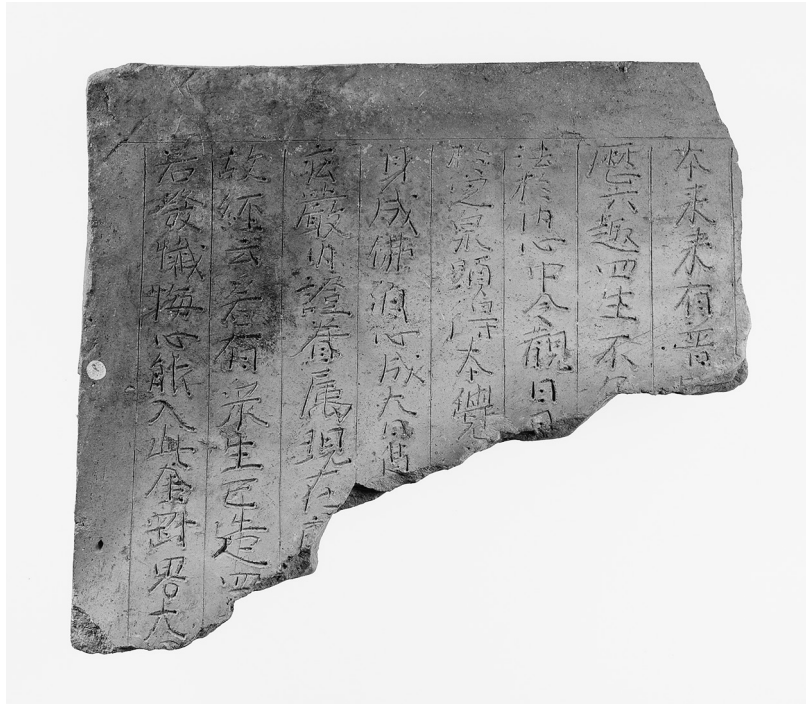 本来未有普
歷六趣四生不
法於内心中令觀日月
本覺
身成佛須心成大
庄嚴内證眷属現在
故經云若有衆生已造四
若發懺悔心能入此金剛界大